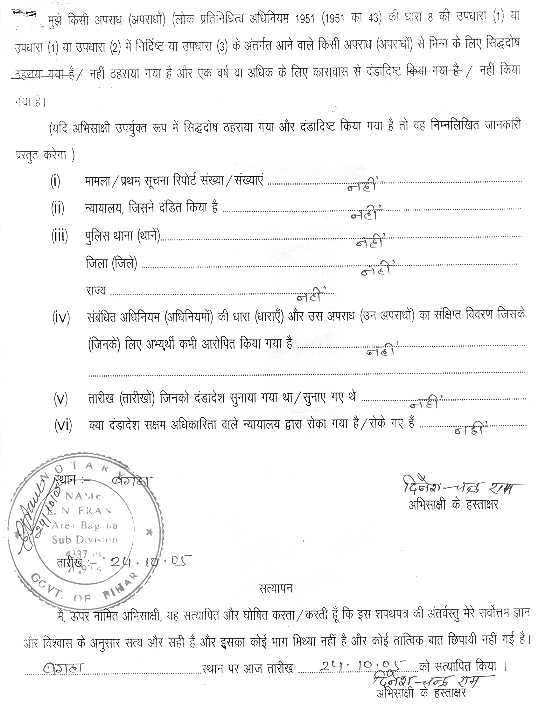 मुझे किसी अपराध (अपराधों) (लोक प्रतिनिधित्व अधिनियम 1951 (1951 का 43) की धारा 8 की उपधारा (1) या
उपधारा (1) या उपधारा (2) में निर्दिष्ट या उपधारा (3) के अंतर्गत आने वाले किसी अपराध (अपराधों) से भिन्न के लिए सिद्धदोष
ठहराया गया है / नहीं ठहराया गया है और एक वर्ष या अधिक के लिए कारावास से दंडादिष्ट किया गया है / नहीं किया
गया है।
(यदि अभिसाक्षी उपर्युक्त रूप में सिद्धदोष ठहराया गया और दंडादिष्ट किया गया है तो वह निम्नलिखित जानकारी
प्रस्तुत करेगा )
(i) मामला / प्रथम सूचना रिपोर्ट संख्या / संख्याएं नहीं
(ii) न्यायालय, जिसने दंडित किया है नहीं
(iii) पुलिस थाना (थानें) नहीं
जिला (जिले) नहीं
राज्य नहीं
(iv) संबंधित अधिनियम (अधिनियमों) की धारा (धाराएँ) और उस अपराध (उन अपराधों) का संक्षिप्त विवरण जिसके
(जिनके) लिए अभ्यर्थी कभी आरोपित किया गया है नहीं
(v) तारीख (तारीखों) जिनको दंडादेश सुनाया गया था / सुनाए गए थे नहीं
(vi) क्या दंडादेश सक्षम अधिकारिता वाले न्यायालय द्वारा रोका गया है / रोके गए हैं नहीं
NOTARY
स्थान :- बगहा
NAME
Area Bagaha
Sub Division
तारीख :- 24.10.05
GOVT. OF BIHAR
दिनेश चन्द्र राम
अभिसाक्षी के हस्ताक्षर
सत्यापन
मैं, ऊपर नामित अभिसाक्षी, यह सत्यापित और घोषित करता / करती हूँ कि इस शपथपत्र की अंतर्वस्तु मेरे सर्वोत्तम ज्ञान
और विश्वास के अनुसार सत्य और सही है और इसका कोई भाग मिथ्या नहीं है और कोई तात्विक बात छिपायी नहीं गई है।
बगहा स्थान पर आज तारीख 24.10.05 को सत्यापित किया ।
दिनेश चन्द्र राम
अभिसाक्षी के हस्ताक्षर